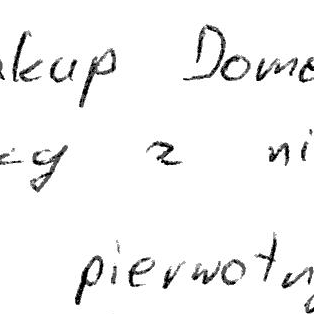 kup Dome
z ni
pierwotn